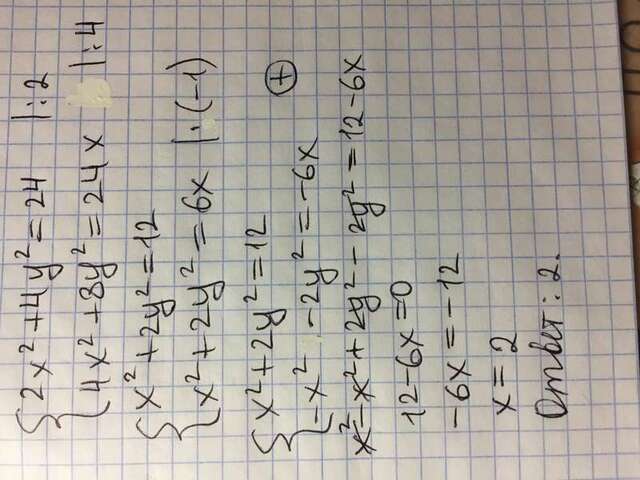 2x² + 4y² = 24 |:2
4x² + 8y² = 24x |:4
x² + 2y² = 12
x² + 2y² = 6x |:(-1)
x² + 2y² = 12
-x² - 2y² = -6x
+
x² - x² + 2y² - 2y² = 12 - 6x
12 - 6x = 0
-6x = -12
x = 2
Ответ: 2.